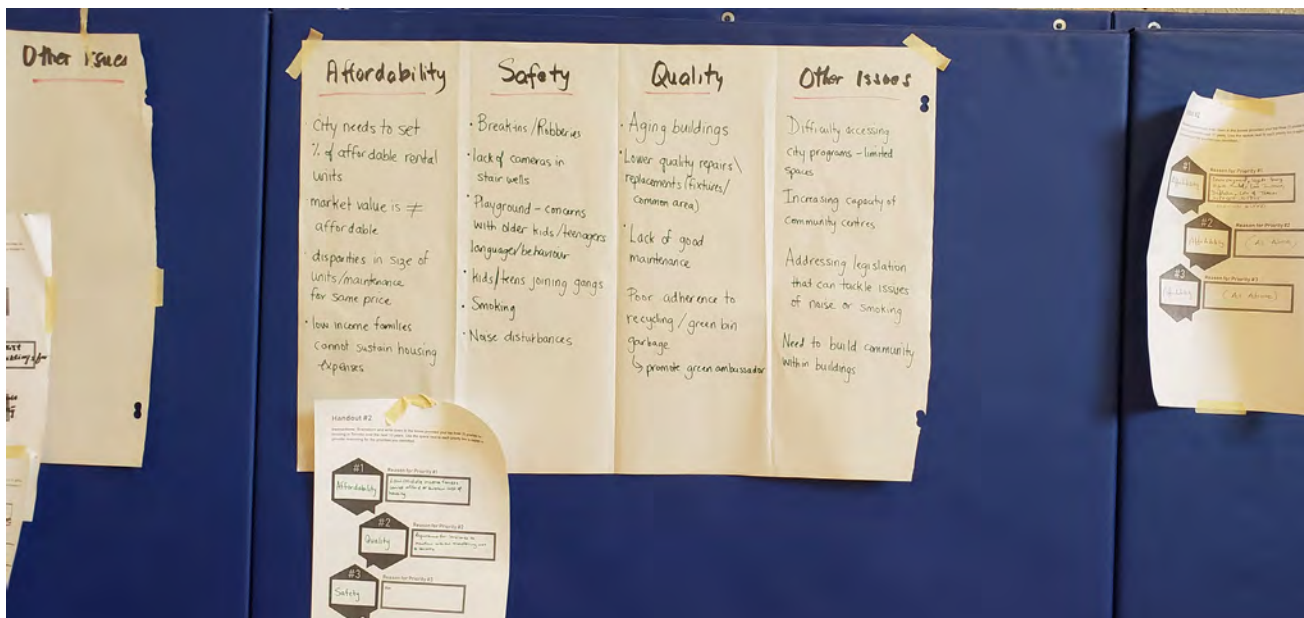 Other issues
Affordability
· City needs to set
% of affordable rental
units
· market value is ≠
affordable
· disparities in size of
units/maintenance
for same price
· low income families
cannot sustain housing
expenses
Safety
· Break-ins/Robberies
· lack of cameras in
stair wells
· Playground – concerns
with older kids/teenagers
language/behaviour
· kids/teens joining gangs
· Smoking
· Noise disturbances
Quality
· Aging buildings
· Lower quality repairs\
replacements (fixtures/
common area)
· Lack of good
maintenance
Poor adherence to
recycling/green bin
garbage
↳ promote green ambassador
Other Issues
Difficulty accessing
city programs – limited
spaces
Increasing capacity of
community centres
Addressing legislation
that can tackle issues
of noise or smoking
Need to build community
within buildings
Handout #2
#1
Affordability
Reason for Priority #1
#2
Quality
Reason for Priority #2
#3
Safety
Reason for Priority #3
#1
Reason for Priority #1
#2
Affordability
Reason for Priority #2
(As Above)
#3
Reason for Priority #3
(As Above)